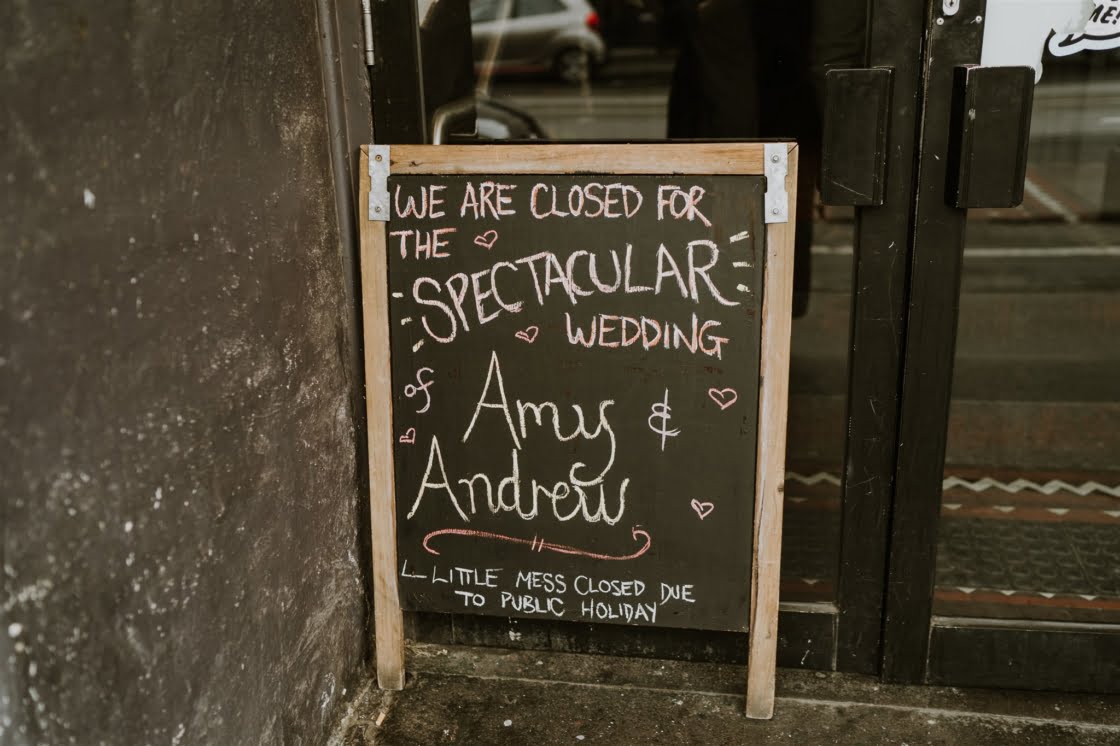 WE ARE CLOSED FOR
THE
SPECTACULAR
WEDDING
of
Amy &
Andrew
LITTLE MESS CLOSED DUE
TO PUBLIC HOLIDAY